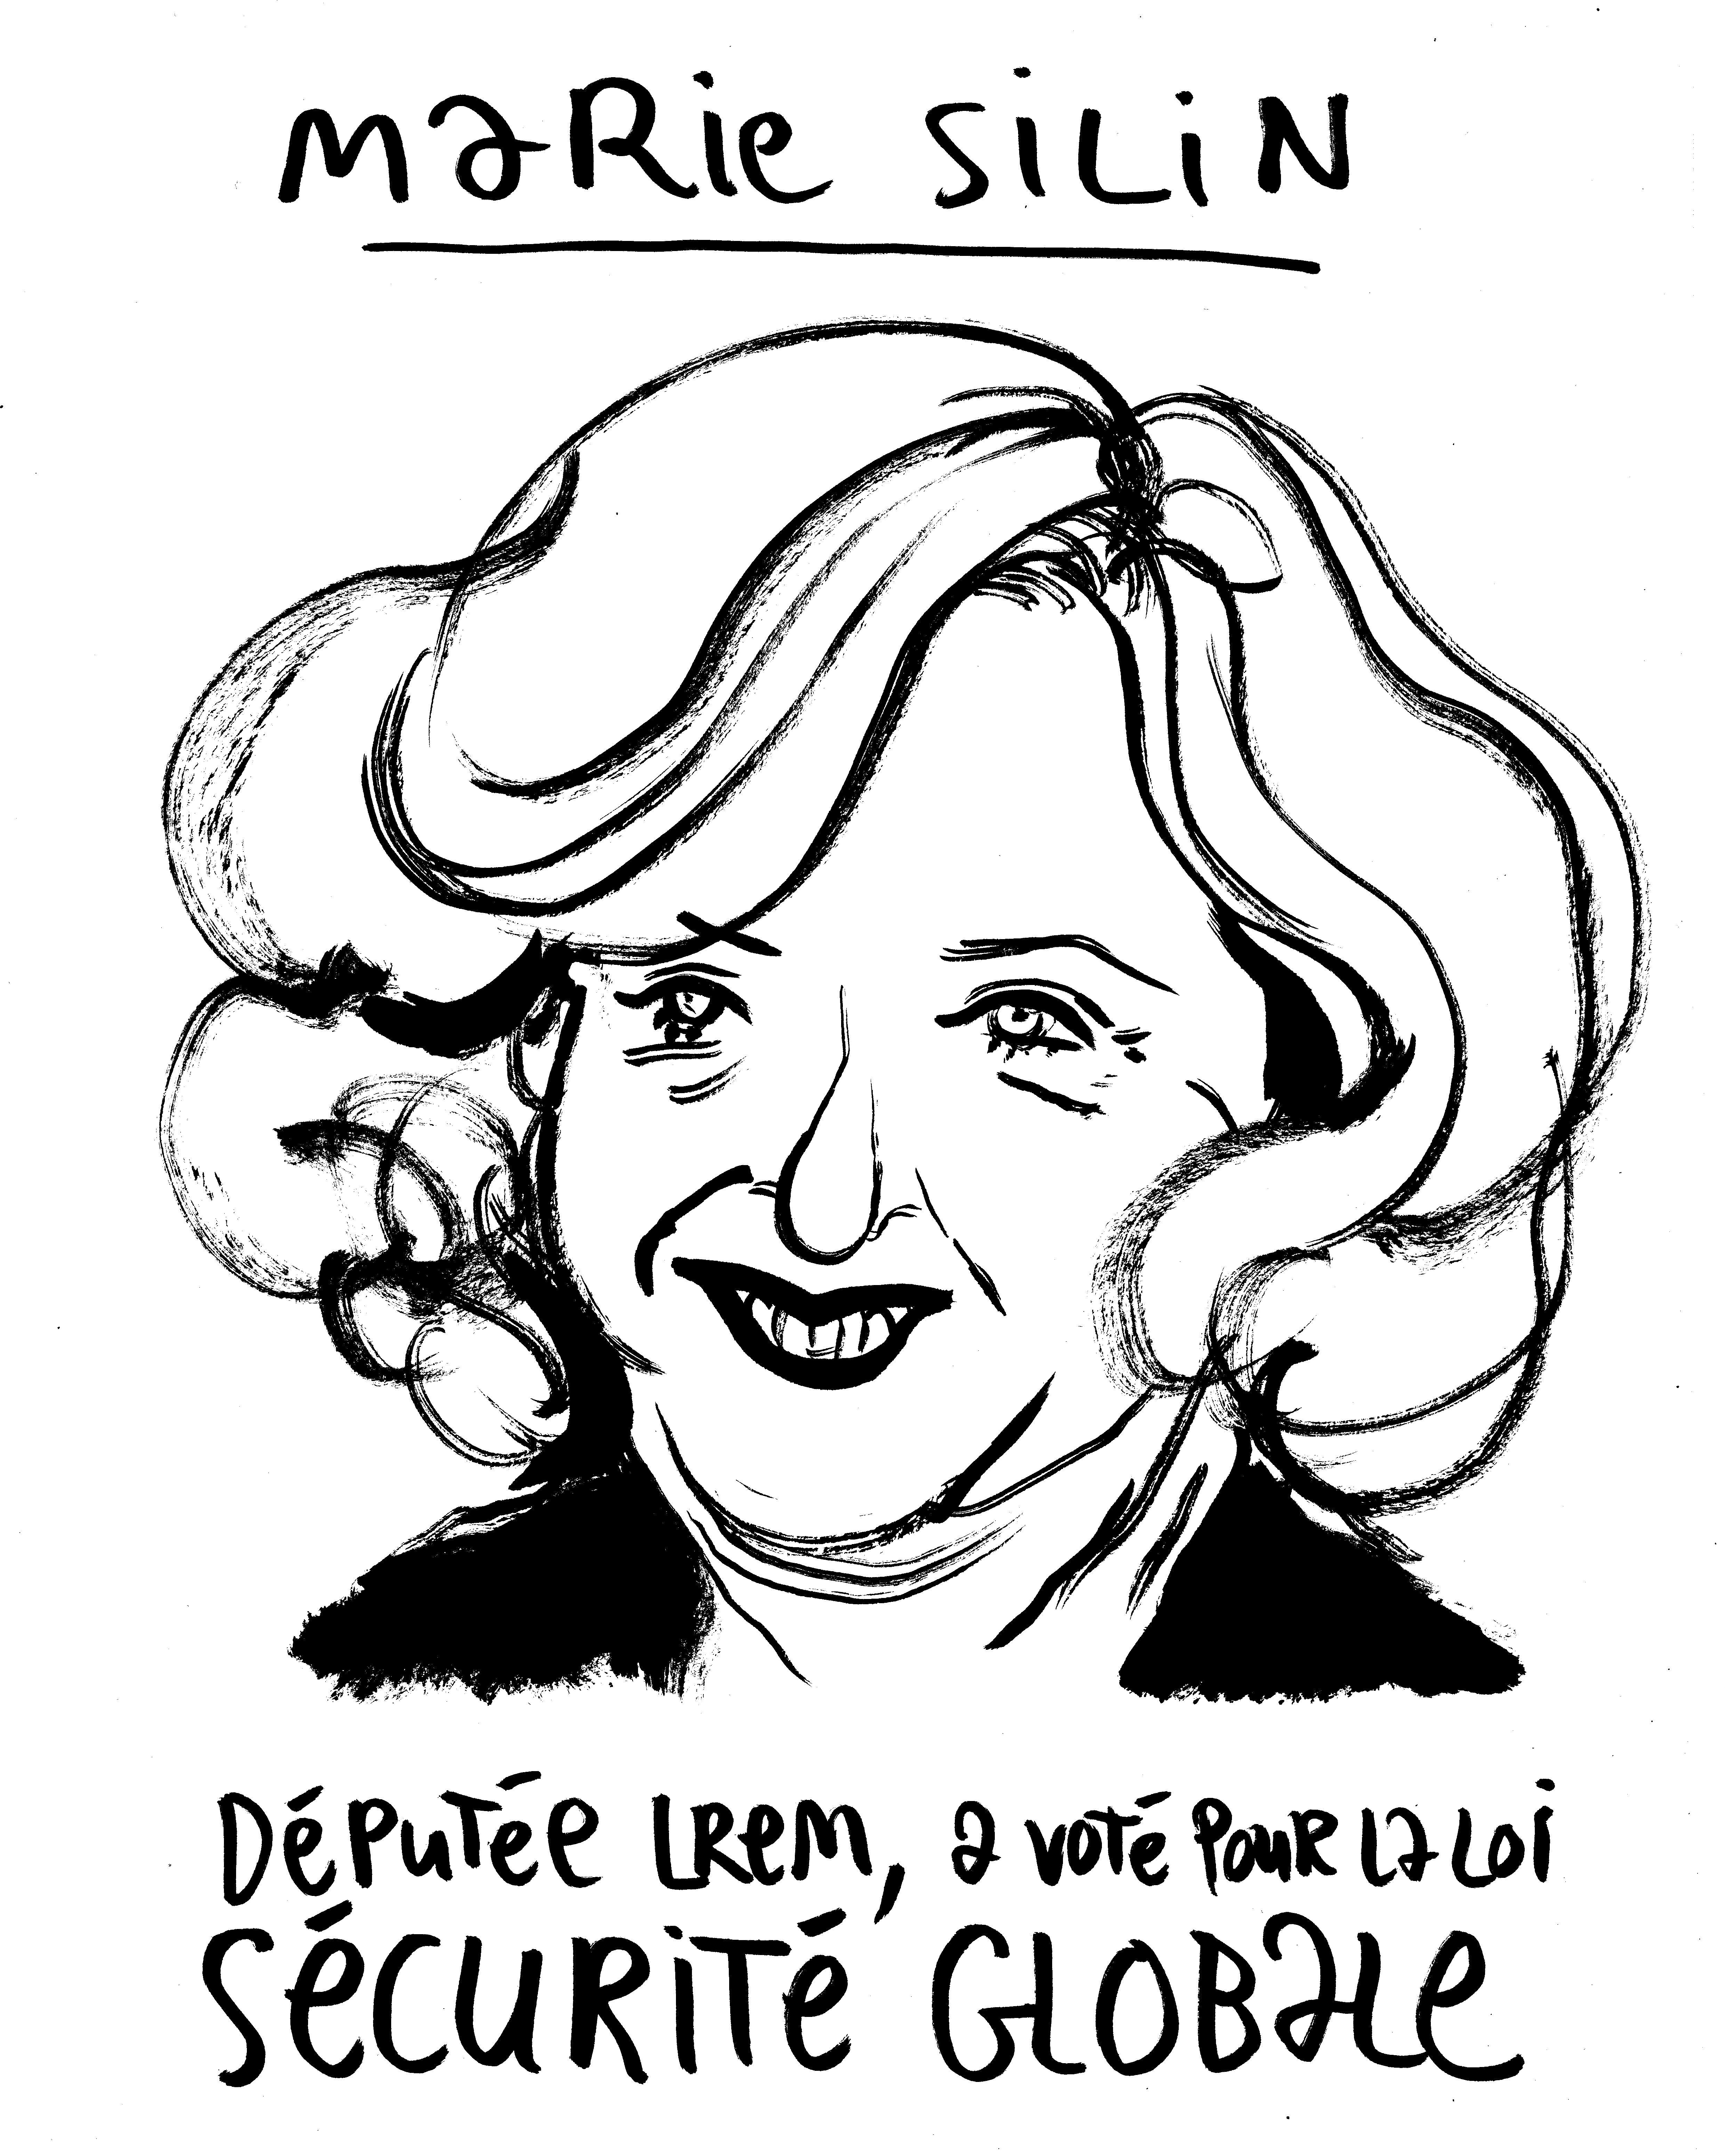 MaRie SiLiN
DéPuTée LReM, a voTé PouR La Loi
SéCURiTé GLOBaLe